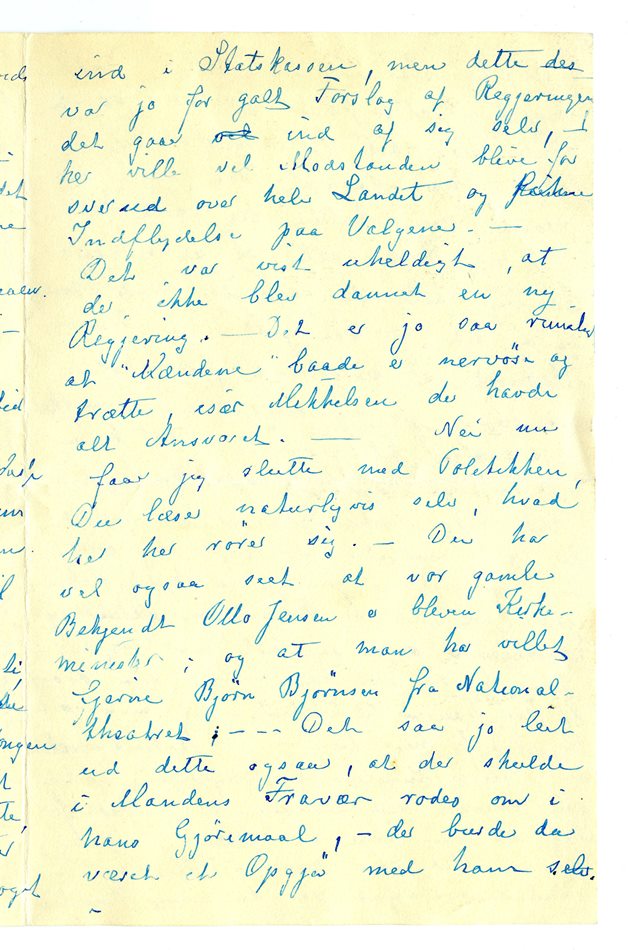 ind i Statskassen, men dette det
var jo for galt Forslag af Regjeringen
det gaar ind af sig selv, –
her ville vel Modstanden blive for
svær ud over hele Landet og
Indflydelse paa Valgene. —
Det var vist uheldigt, at
der ikke blev dannet en ny
Regjering. — Det er jo saa rimeligt
at "Mændene" baade er nervöse og
trætte, især Mikkelsen der havde
alt Ansvaret. — Nei nu
faar jeg slutte med Politikken,
Du læser naturligvis selv, hvad
her her rörer sig. — Du har
vel ogsaa seet at vor gamle
Bekjendt Otto Jensen er bleven Kirke-
minister; og at man har villet
fjerne Bjørn Bjørnsen fra National-
theatret; --- Det saa jo leit
ud dette ogsaa, at der skulde
i Mandens Fravær rodes om i
hans Gjöremaal, – der burde da
været et Opgjör med ham selv.
–